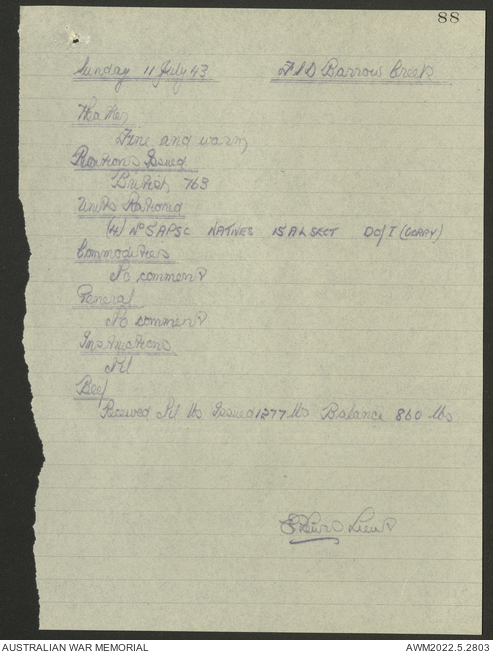 88
Sunday 11 July 43 FSD Barrow Creek
Weather
Fine and warm
Rations Issued
British 763
Units Rationed
(4) No 5 APSC NATIVES 15 AL SECT DO/T (COAPY)
Commodities
No comment
General
No comment
Instructions
Nil
Beef
Received Nil lbs Issued 1277 lbs Balance 860 lbs
Lieut
AUSTRALIAN WAR MEMORIAL AWM2022.5.2803